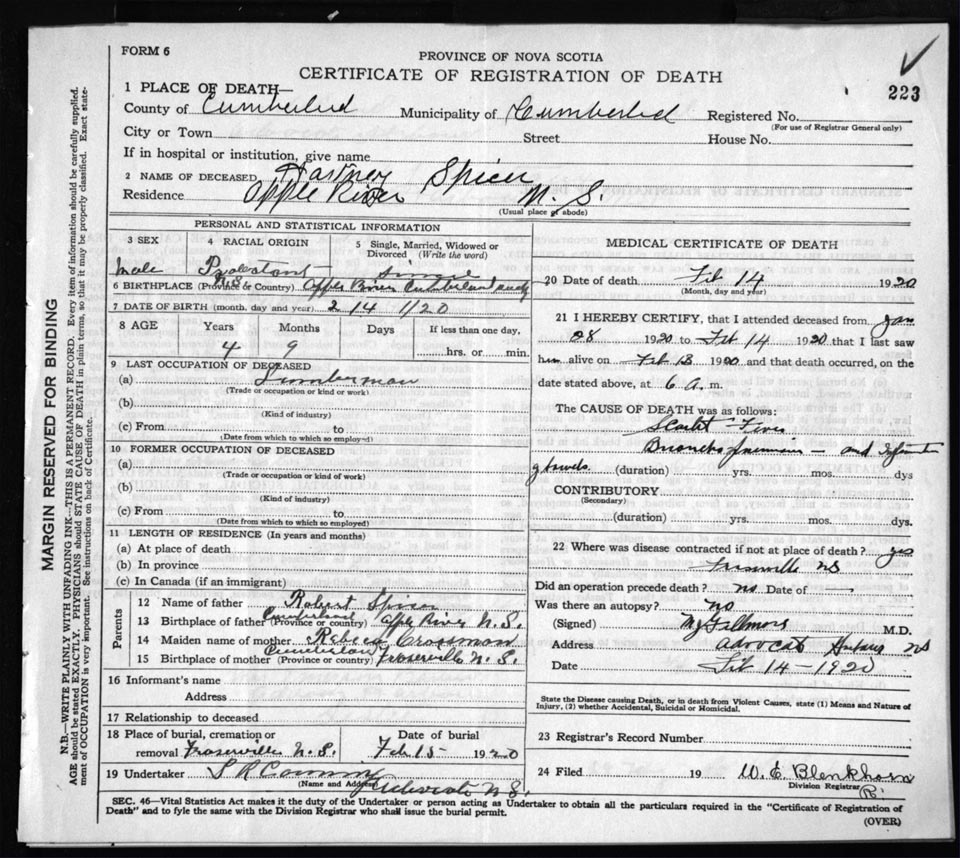 FORM 6
PROVINCE OF NOVA SCOTIA
CERTIFICATE OF REGISTRATION OF DEATH
223
1 PLACE OF DEATH—
County of Cumberlnd Municipality of Cumberlnd Registered No.
(For use of Registrar General only)
City or Town Street House No.
If in hospital or institution, give name
2 NAME OF DECEASED Hartney Spicer
Residence Apple River N. S.
(Usual place of abode)
PERSONAL AND STATISTICAL INFORMATION
3 SEX 4 RACIAL ORIGIN 5 Single, Married, Widowed or Divorced (Write the word)
Male Protestant Single
6 BIRTHPLACE (Province or Country) Apple River Cumberland
7 DATE OF BIRTH (month, day and year) 2 14 1120
8 AGE Years Months Days If less than one day,
4 9 hrs. or min.
9 LAST OCCUPATION OF DECEASED
(a) Lumberman
(Trade or occupation or kind or work)
(b)
(Kind of industry)
(c) From to
(Date from which to which so employed)
10 FORMER OCCUPATION OF DECEASED
(a)
(Trade or occupation or kind of work)
(b)
(Kind of industry)
(c) From to
(Date from which to which so employed)
11 LENGTH OF RESIDENCE (In years and months)
(a) At place of death
(b) In province
(c) In Canada (if an immigrant)
Parents
12 Name of father Robert Spicer
13 Birthplace of father (Province or country) Cumberland Apple River N.S.
14 Maiden name of mother Rebeca Crossman
15 Birthplace of mother (Province or country) Cumberland Fraserville N.S.
16 Informant's name
Address
17 Relationship to deceased
18 Place of burial, cremation or Date of burial
removal Fraserville N.S. Feb 15 1920
19 Undertaker S R
(Name and Address)
N S.
MEDICAL CERTIFICATE OF DEATH
20 Date of death Feb 14 1920
(Month, day and year)
21 I HEREBY CERTIFY, that I attended deceased from Jan
28 1920 to Feb 14 1920 that I last saw
him alive on Feb 13 1920 and that death occurred, on the
date stated above, at 6 A. m.
The CAUSE OF DEATH was as follows:
Scarlet Fever
Broncho pneumonia — and
bowels (duration) yrs. mos. dys
CONTRIBUTORY
(Secondary)
(duration) yrs. mos. dys.
22 Where was disease contracted if not at place of death? yes
Fraserville NS
Did an operation precede death? no Date of
Was there an autopsy? NO
(Signed) Fillmore M.D.
Address Advocate Harbour NS
Date Feb 14 - 1920
State the Disease causing Death, or in death from Violent Causes, state (1) Means and Nature of
Injury, (2) whether Accidental, Suicidal or Homicidal.
23 Registrar's Record Number
24 Filed 19 W. E. Blenkhorn
Division Registrar
(R.)
SEC. 46—Vital Statistics Act makes it the duty of the Undertaker or person acting as Undertaker to obtain all the particulars required in the "Certificate of Registration of
Death" and to fyle the same with the Division Registrar who shall issue the burial permit.
(OVER)
MARGIN RESERVED FOR BINDING
N.B.—WRITE PLAINLY WITH UNFADING INK—THIS IS A PERMANENT RECORD. Every item of information should be carefully supplied.
AGE should be stated EXACTLY. PHYSICIANS should STATE CAUSE OF DEATH in plain terms, so that it may be properly classified. Exact state-
ment of OCCUPATION is very important. See instructions on back of Certificate.